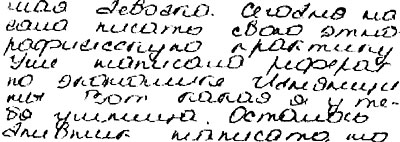 шая девочка. Сегодня на
чала писать свою этно
графическую практику
Уже написала реферат
по экономике
ния Вот какая я у те
бя умница. Осталось
дневник написать по